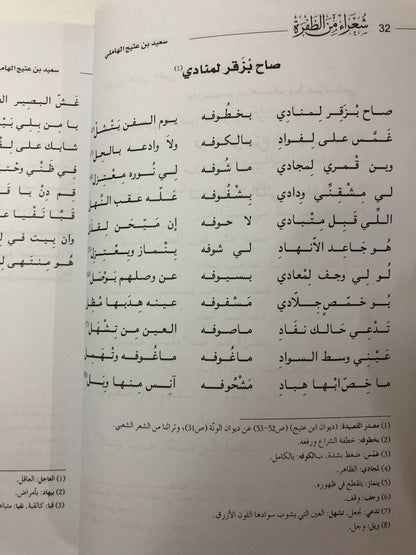 32
شعراء من الظفرة
سعيد بن عتيج الهاملي
صاح بْزَقر لمنادي (1)
صاح بْزَقر لِمنادِي بخطُوفه يوم السفن بَتْنشا
غمّس على لِفواد بالكوفه ولا وادعه بالحل
وين قمري لِمجادي ما شُوفه لي نُوره معتزل
لي مشقنّي ودادي بشْغُوفه علّه عقب النّهل
اللّي قَبل متْبادي لا حوفه إن ميّحن لِقذل
هو جاعد الأنهاد لي شوفه بنْماز ويعتزل
لُو لي وجف لِمعادي بسيوفه عن وصلهم بَوْصَل
بو خمصٍ جلادي مَسْفوفه عينه هدبها مظل
تدْعي حالك نفاد ماصوفه العين من تِشْهَل
عَيْني وسط السواد ماغُوفه ماغُوفه وتْهمل
ما خصّ ابْها هباد مَشْحُوفه آنس منها وبَل
(1) مصدر القصيدة: (ديوان ابن عتيج) (ص52–53) عن ديوان الونّة (ص31)، وتراثنا من الشعر الشعبي.
(2) بخطوفه: خطفة الشراع ورفعه.
(3) غمّس: ضغط بشدة. بالكوفه: بالكامل.
(4) لمجادي: الظاهر.
(5) ينماز: يتقطع في ظهوره.
(6) وجف: وقف.
(7) تدعي: تجعل. تشهل: العين التي يشوب سوادها اللون الأزرق.
(8) وبل: وجل.
سعيد بن عتيج الهاملي
غشّ البصير
يا من بِلي
شابك على لفـ
في ظنّي وحـ
قِم دِنْ يا
وان بيت في لـ
هُو مِنتهى لـ
(1) العاجل: العاقل.
(2) بيهاد: بأمراض.
(3) قبا: كالقبة.